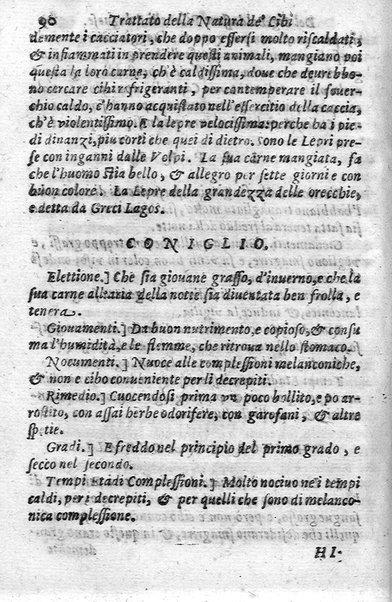 90 Trattato della Natura de' Cibi
demente i cacciatori, che doppo essersi molto riscaldati,
& infiammati in prendere questi animali, mangiano poi
questa la loro carne, ch'è caldissima, doue che deurebbo-
no cercare cibi refrigeranti, per contemperare il souer-
chio caldo, c'hanno acquistato nell'essercitio della caccia,
ch'è violentissimo. E la lepre velocissima: perche ha i pie-
di dinanzi, piu corti che quei di dietro. Sono le Lepri pre-
se con inganni dalle Volpi. La sua carne mangiata, fa
che l'huomo stia bello, & allegro per sette giorni e con
buon colore. La Lepre della grandezza delle orecchie,
e detta da Greci Lagos.
CONIGLIO.
Elettione.] Che sia giouane grasso, d'inuerno, e che la
sua carne all'aria della notte sia diuentata ben frolla, e
tenera.
Giouamenti.] Da buon nutrimento, e copioso, & consu
ma l'humidità, e le flemme, che ritroua nello stomaco.
Nocumenti.] Nuoce alle complessioni melanconiche,
& non e cibo conueniente per li decrepiti.
Rimedio.] Cuocendosi prima vn poco bollito, e po ar-
rostito, con assai herbe odorifere, con garofani, & altre
spetie.
Gradi.] E freddo nel principio del primo grado, e
secco nel secondo.
Tempi Età di Complessioni.] Molto nociuo ne i tempi
caldi, per i decrepiti, & per quelli che sono di melanco-
nica complessione.
HI-